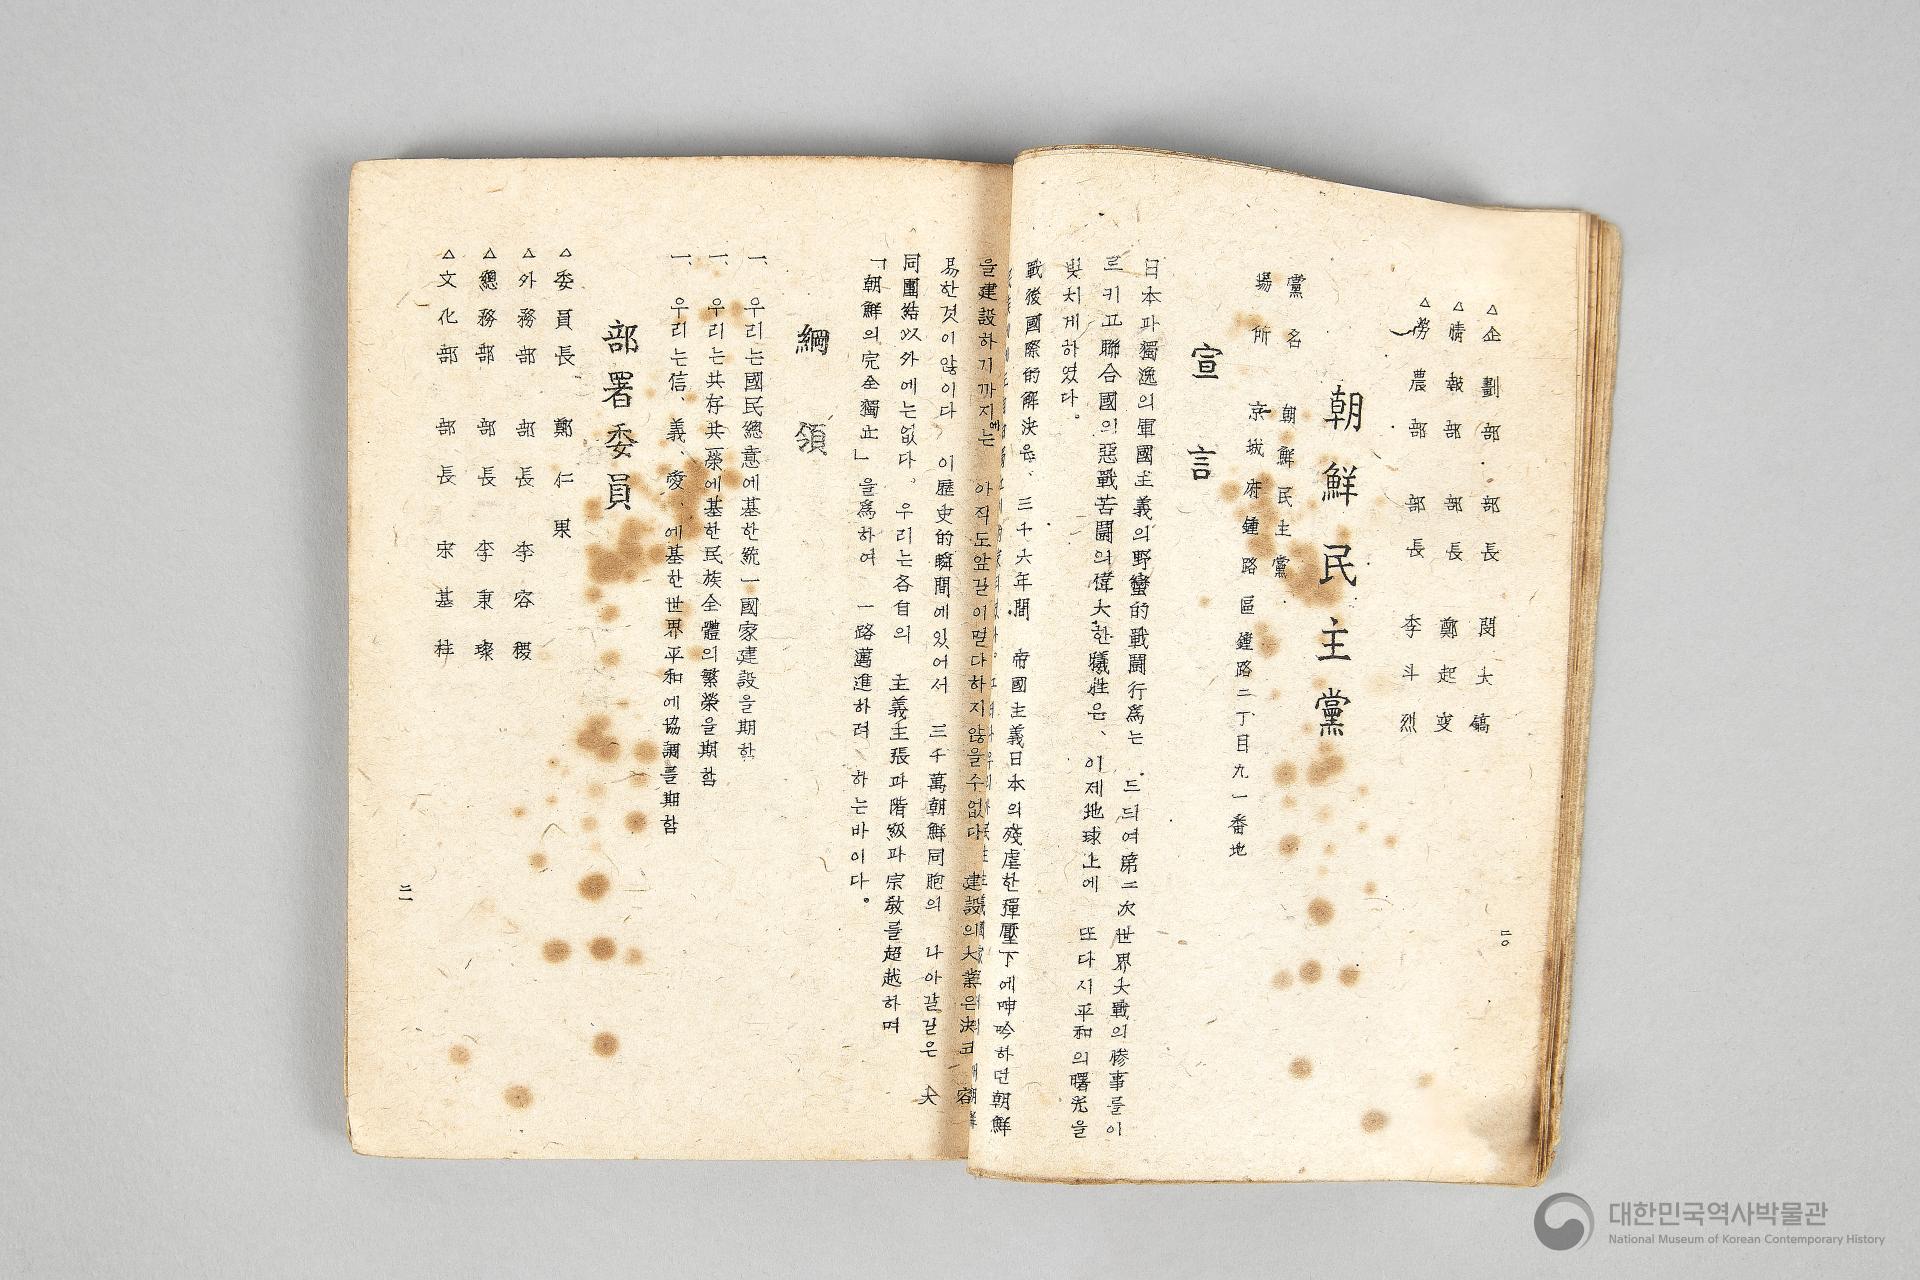 △企劃部 部長 閔大鎬
△情報部 部長 鄭起燮
△勞農部 部長 李斗烈
朝鮮民主黨
黨名 朝鮮民主黨
場所 京城府鍾路區鍾路二丁目九一番地
宣言
日本과獨逸의軍國主義의野蠻的戰鬪行爲는 드듸여第二次世界大戰의慘事를이
르키고聯合國의惡戰苦鬪의偉大한犧牲은、이제地球上에 또다시平和의曙光을
빛치게하였다。
戰後國際的解決은、三十六年間 帝國主義日本의殘虐한彈壓下에呻吟하던朝鮮
二〇
을建設하기까지에는 아직도앞길이멀다하지않을수없다 建設의大業은決코 容
易한것이않이다 이歷史的瞬間에있어서 三千萬朝鮮同胞의 나아갈길은 大
同團結以外에는없다。우리는各自의 主義主張과階級과宗敎를超越하며
「朝鮮의完全獨立」을爲하여 一路邁進하려 하는바이다。
綱領
一、우리는國民總意에基한統一國家建設을期함
一、우리는共存共榮에基한民族全體의繁榮을期함
一、우리는信、義、愛、에基한世界平和에協調를期함
部署委員
△委員長 鄭仁果
△外務部 部長 李容稷
△總務部 部長 李秉璨
△文化部 部長 宋基柱
二一
대한민국역사박물관
National Museum of Korean Contemporary History